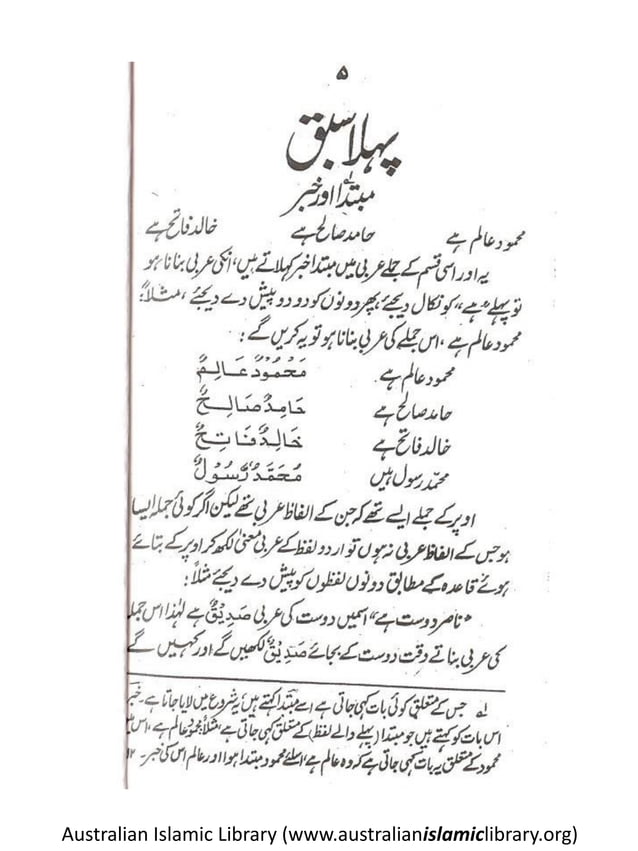 ۵
پہلا سبق
مبتدا؎۱ اور خبر
محمود عالم ہے حامد صالح ہے خالد فاتح ہے
یہ اور اسی قسم کے جملے عربی میں مبتدا خبر کہلاتے ہیں، انکی عربی بنانا ہو
تو پہلے "ہے" کو نکال دیجئے، پھر دونوں کو دو دو پیش دے دیجئے، مثلاً:
محمود عالم ہے، اس جملے کی عربی بنانا ہو تو یہ کریں گے:
محمود عالم ہے۔ مَحْمُوْدٌ عَالِمٌ
حامد صالح ہے حَامِدٌ صَالِحٌ
خالد فاتح ہے خَالِدٌ فَاتِحٌ
محمّد رسول ہیں مُحَمَّدٌ رَسُوْلٌ
اوپر کے جملے ایسے تھے کہ جن کے الفاظ عربی تھے لیکن اگر کوئی جملہ ایسا
ہو جس کے الفاظ عربی نہ ہوں تو اردو لفظ کے عربی معنیٰ لکھ کر اوپر کے بتائے
ہوئے قاعدہ کے مطابق دونوں لفظوں کو پیش دے دیجئے مثلاً:
"ناصر دوست ہے" اسمیں دوست کی عربی صَدِیْقٌ ہے لہٰذا اس جملہ
کی عربی بناتے وقت دوست کے بجائے صَدِیْقٌ لکھیں گے اور کہیں گے
؎۱ جس کے متعلق کوئی بات کہی جاتی ہے اسے مبتدا کہتے ہیں، یہ شروع میں لایا جاتا ہے۔ خبر
اس بات کو کہتے ہیں جو مبتدا (پہلے والے لفظ) کے متعلق کہی جاتی ہے، مثلاً محمود عالم ہے، اس میں
محمود کے متعلق یہ بات کہی جاتی ہے کہ وہ عالم ہے، اسلئے محمود مبتدا ہوا اور عالم اس کی خبر۔ ۱۲
Australian Islamic Library (www.australianislamiclibrary.org)